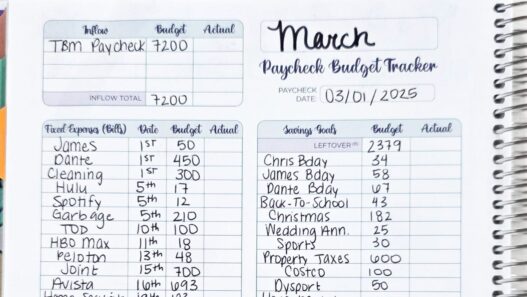 Inflow Budget Actual
TBM Paycheck 7200
INFLOW TOTAL 7200
March
Paycheck Budget Tracker
PAYCHECK DATE: 03/01/2025
Fixed Expenses (Bills) Date Budget Actual
James 1ST 50
Dante 1ST 450
Cleaning 1ST 300
Hulu 5th 17
Spotify 5th 12
Garbage 5th 210
TOD 10th 100
HBO Max 11th 18
Peloton 13th 48
Joint 15th 700
Avista 16th 693
Savings Goals Budget Actual
LEFTOVER 2379
Chris Bday 34
James Bday 58
Dante Bday 67
Back-To-School 43
Christmas 182
Wedding Ann. 25
Sports 30
Property Taxes 600
Costco 100
Dysport 50